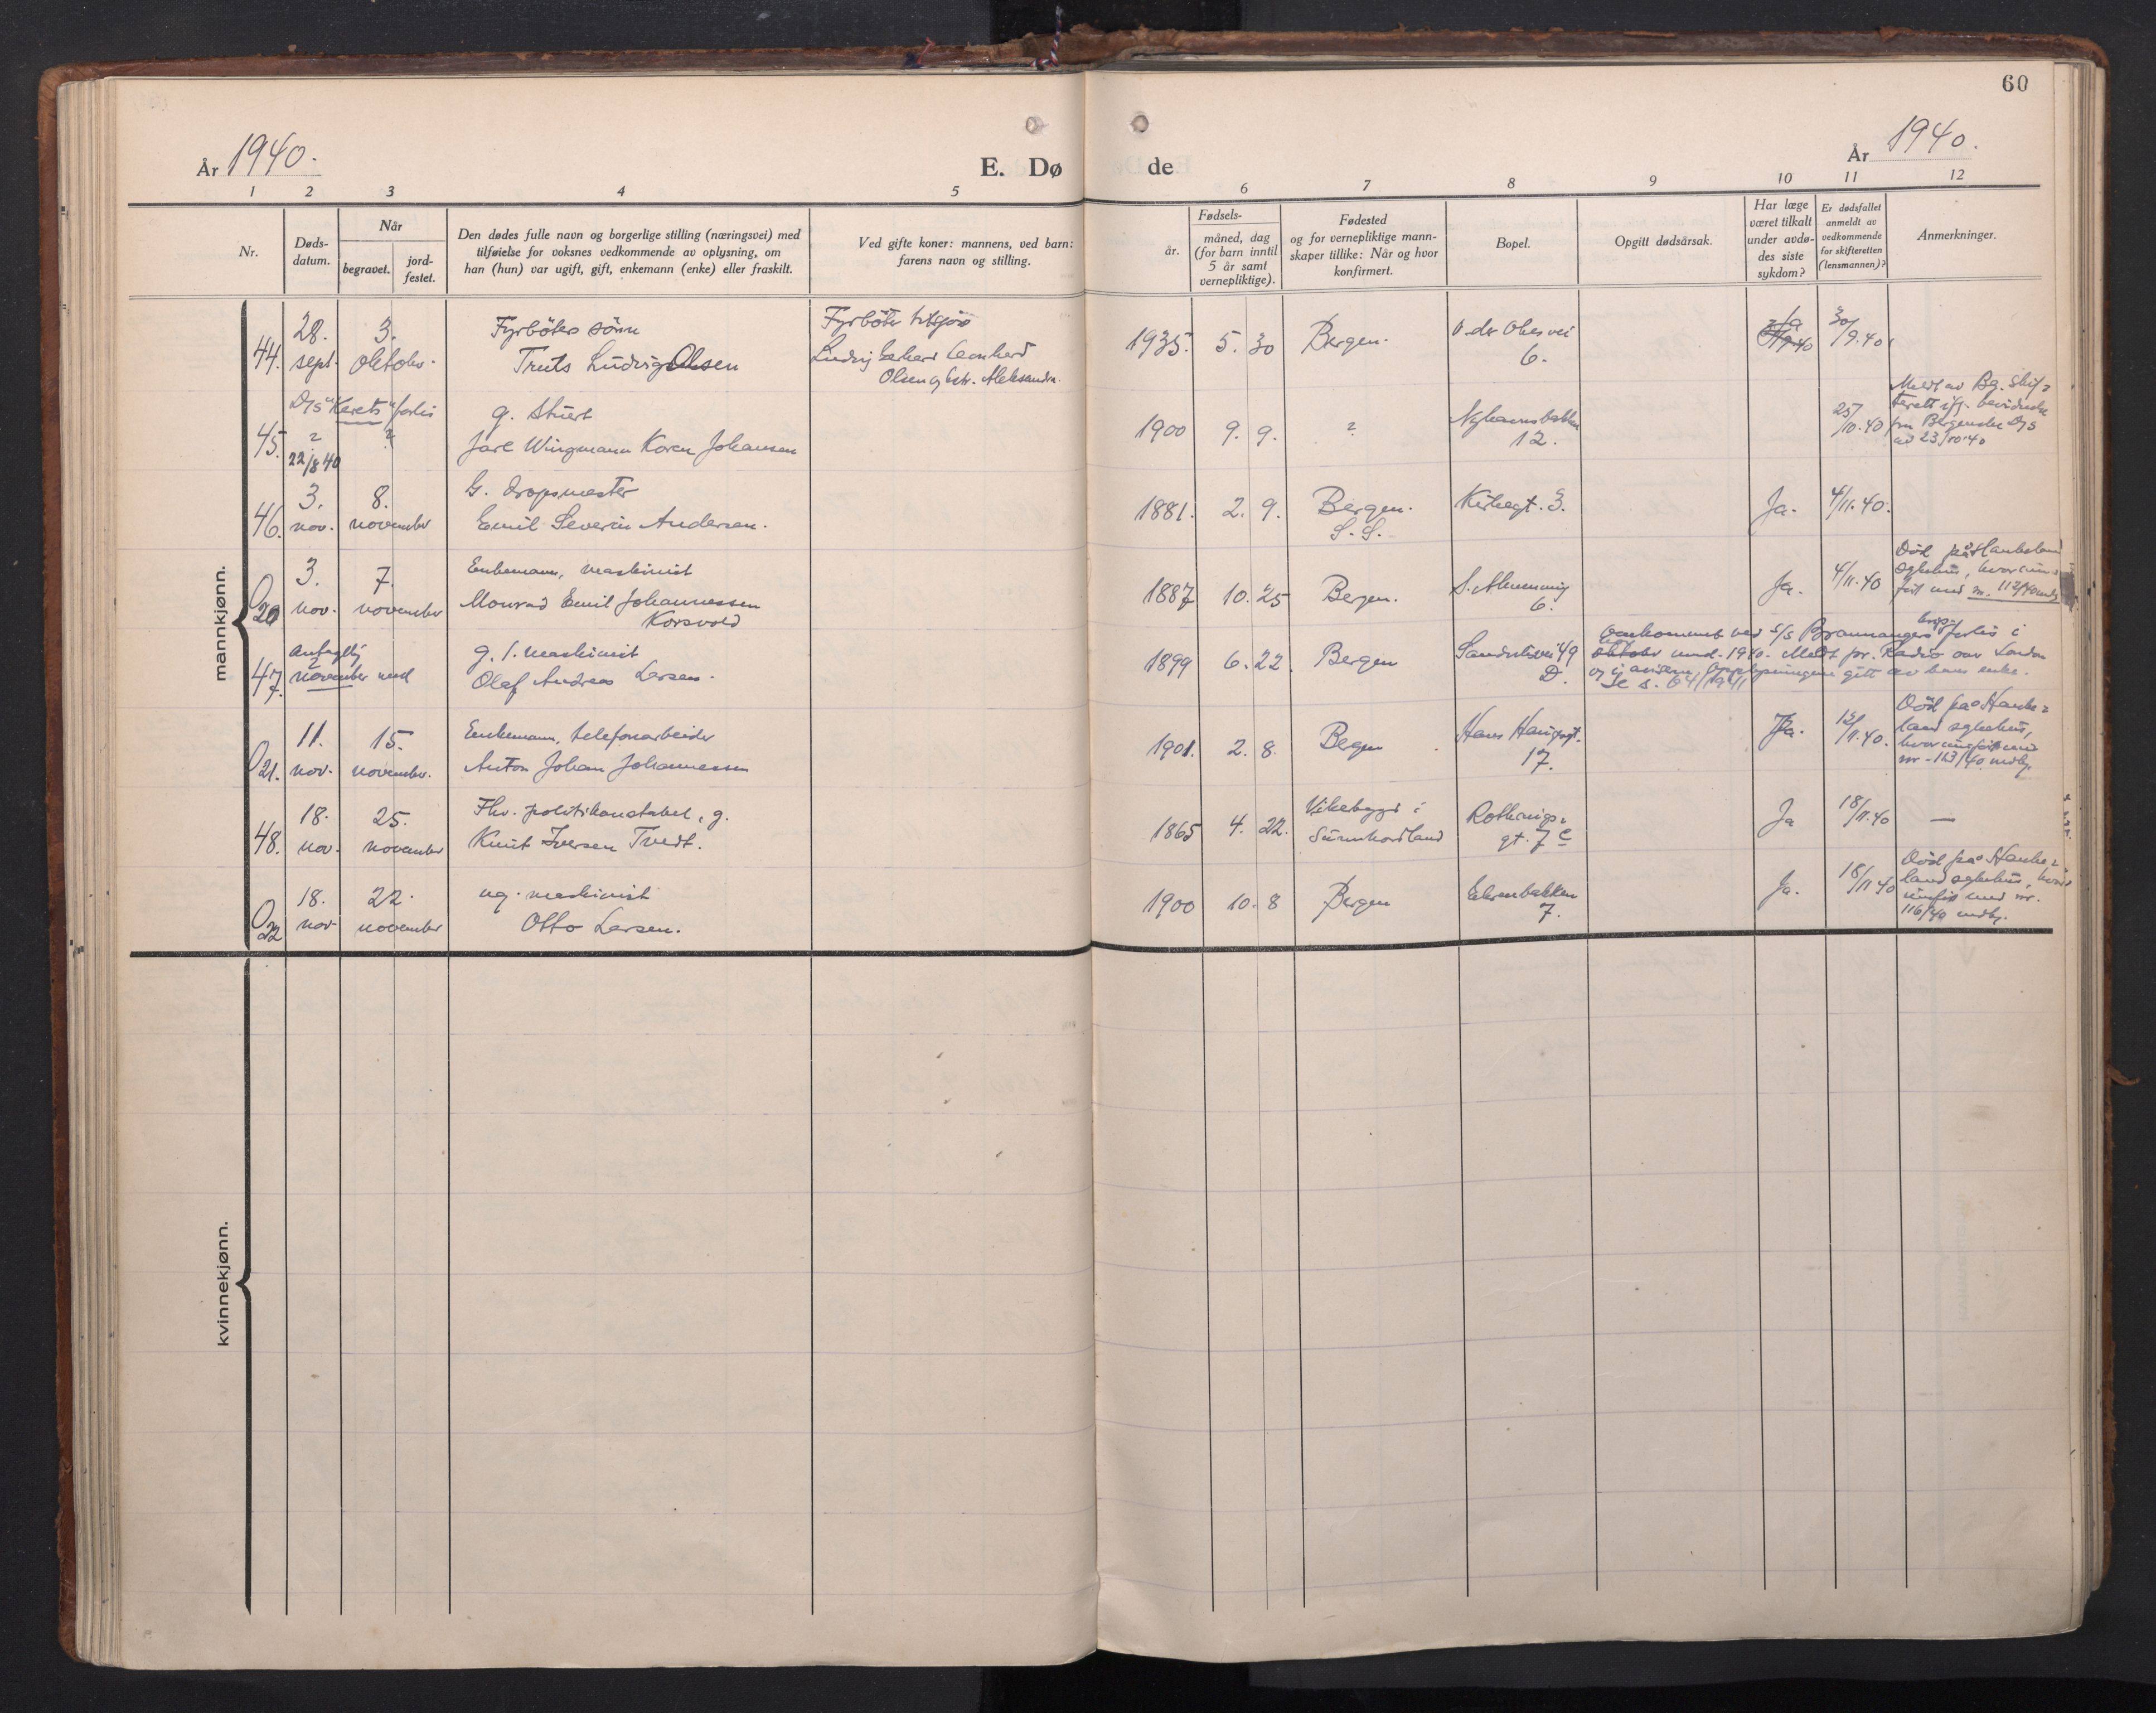 60
År 1940.
E. Dø de
År 1940.
1 2 3 4 5 6 7 8 9 10 11 12
Nr.
Døds-
datum.
Når
begravet.
jord-
festet.
Den dødes fulle navn og borgerlige stilling (næringsvei) med
tilføielse for voksnes vedkommende av oplysning, om
han (hun) var ugift, gift, enkemann (enke) eller fraskilt.
Ved gifte koner: mannens, ved barn:
farens navn og stilling.
Fødsels-
år.
måned, dag
(for barn inntil
5 år samt
vernepliktige).
Fødested
og for vernepliktige mann-
skaper tillike: Når og hvor
konfirmert.
Bopel.
Opgitt dødsårsak.
Har læge
været tilkalt
under avdø-
des siste
sykdom?
Er dødsfallet
anmeldt av
vedkommende
for skifteretten
(lensmannen)?
Anmerkninger.
mannkjønn.
44. 28. sept. 3. oktober.
Fyrböters sönn
Truls Ludvig Olsen
Fyrböter
Ludvig Gerhard Leonhard
Olsen og hstr. Aleksandra.
1935. 5. 30 Bergen.
6.
Ja
30/9.40
45. D/S "Keret"s forlis
? ?
22/8 40
g. Stuert
Jarl Wingmann Koren Johansen
1900 9. 9. ?
Nyhavnsbakken
12.
25/10.40
Meldt av Bg. skif-
terett
fra Bergenske D/S
23/10.40
46. 3. nov. 8. november
G. dropsmester
Emil Severin Andersen.
1881. 2. 9. Bergen.
S. S.
Kirkegt. 3.
Ja. 4/11.40.
O 20 3. nov. 7. november
Enkemann, maskinist
Monrad Emil Johannessen
Korsvold
1887 10. 25 Bergen.
6.
Ja. 4/11.40
Död på Haukeland
sykehus, hvor inn-
fört med nr. 112/40
47. Antagelig
november
g. 1. maskinist
Olaf Andreas Larsen.
1899 6. 22. Bergen
49
D.
Omkommet ved s/s Brannangers forlis i
oktober 1940. Meldt pr. Radio over London
og i avisen. Oplysningene gitt av hans enke.
Se s. 64/1941
O 21. 11. nov. 15. november.
Enkemann, telefonarbeider
Anton Johan Johannessen
1901. 2. 8. Bergen
Hans Haugesgt.
17.
Ja. 12/11.40.
Död på Hauke-
land sykehus,
hvor innfört med
nr. 113/40
48. 18. nov. 25. november
Fhv. politikonstabel, g.
Knut Iversen Tvedt.
1865 4. 22.
Vikebygd i
Sunnhordland
gt. 7 c
Ja 18/11.40 —
O 22 18. nov. 22. november
ug. maskinist
Otto Larsen.
1900 10. 8 Bergen
7.
Ja. 18/11 40
Död på Hauke-
land sykehus, hvor
innfört med nr.
116/40
kvinnekjønn.